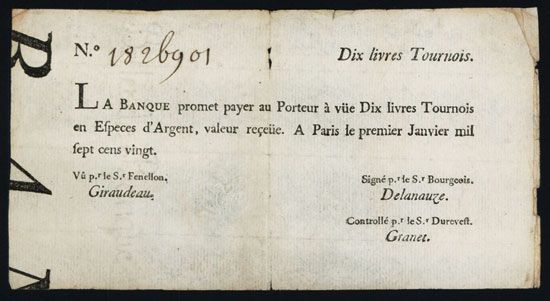 N.º 1826901
Dix livres Tournois.
LA BANQUE promet payer au Porteur à vüe Dix livres Tournois
en Eſpeces d'Argent, valeur reçeüe. A Paris le premier Janvier mil
ſept cens vingt.
Vû p.r le S.r Fenellon.
Giraudeau.
Signé p.r le S.r Bourgeois.
Delanauze.
Controllé p.r le S.r Dureveſt.
Granet.